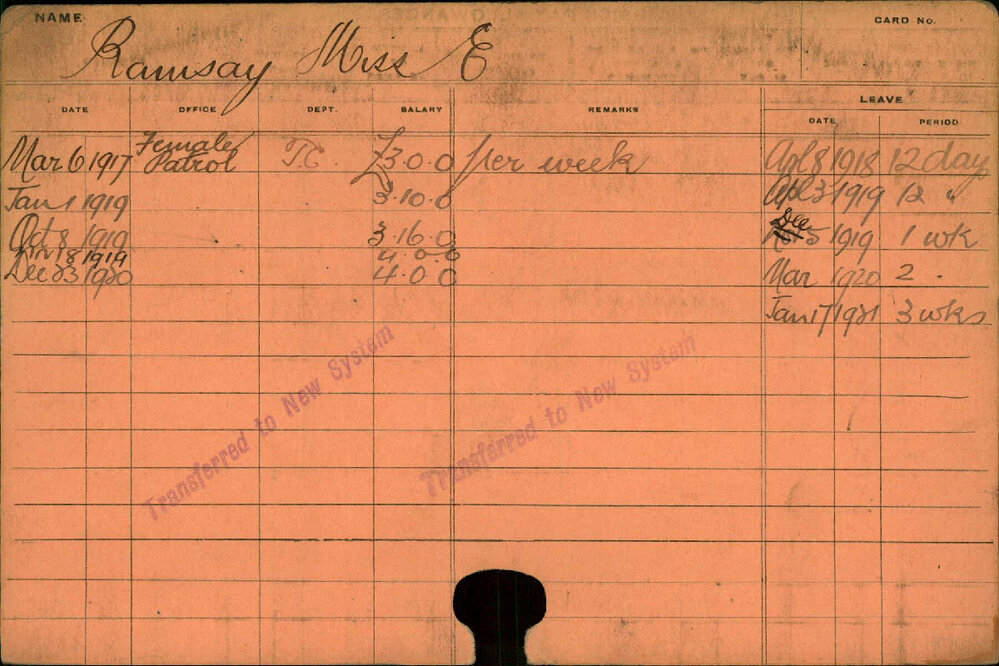 NAME
CARD No.
Ramsay Miss E
DATE OFFICE DEPT. SALARY REMARKS LEAVE
DATE PERIOD
Mar 6 1917 Female Patrol T.C. £3.0.0 per week Apl 8 1918 12 day
Jan 1 1919 3.10.0 Apl 3 1919 12 "
Oct 8 1919 3.16.0 Dec 5 1919 1 wk
Nov 18 1919 4.0.0
Dec 23 1920 4.0.0 Mar 1920 2 .
Jan 17 1921 3 wks
Transferred to New System
Transferred to New System